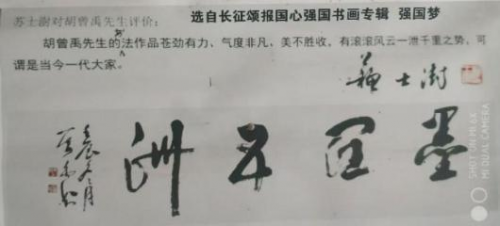 苏士澍对胡曾禹先生评价：
选自长征颂报国心强国书画专辑 强国梦
胡曾禹先生的书法作品苍劲有力、气度非凡、美不胜收，有滚滚风云一泄千重之势，可
谓是当今一代大家。
苏士澍
墨润五洲
SHOT ON MI MAX
MI DUAL CAMERA